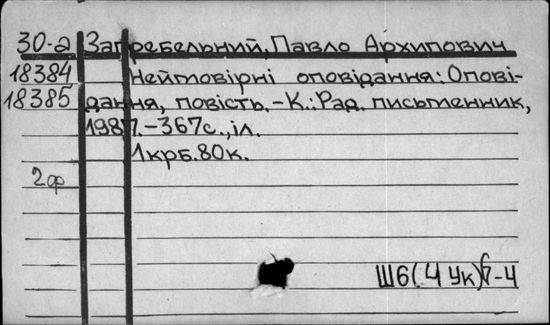 30-а Загребельний, Павло Архипович
18384 Неймовірні оповідання: Опові-
18385 дання, повість.-К.: Рад. письменник,
1987.-367с., іл.
1крб.80к.
2ф
Ш6(4Ук)67-4